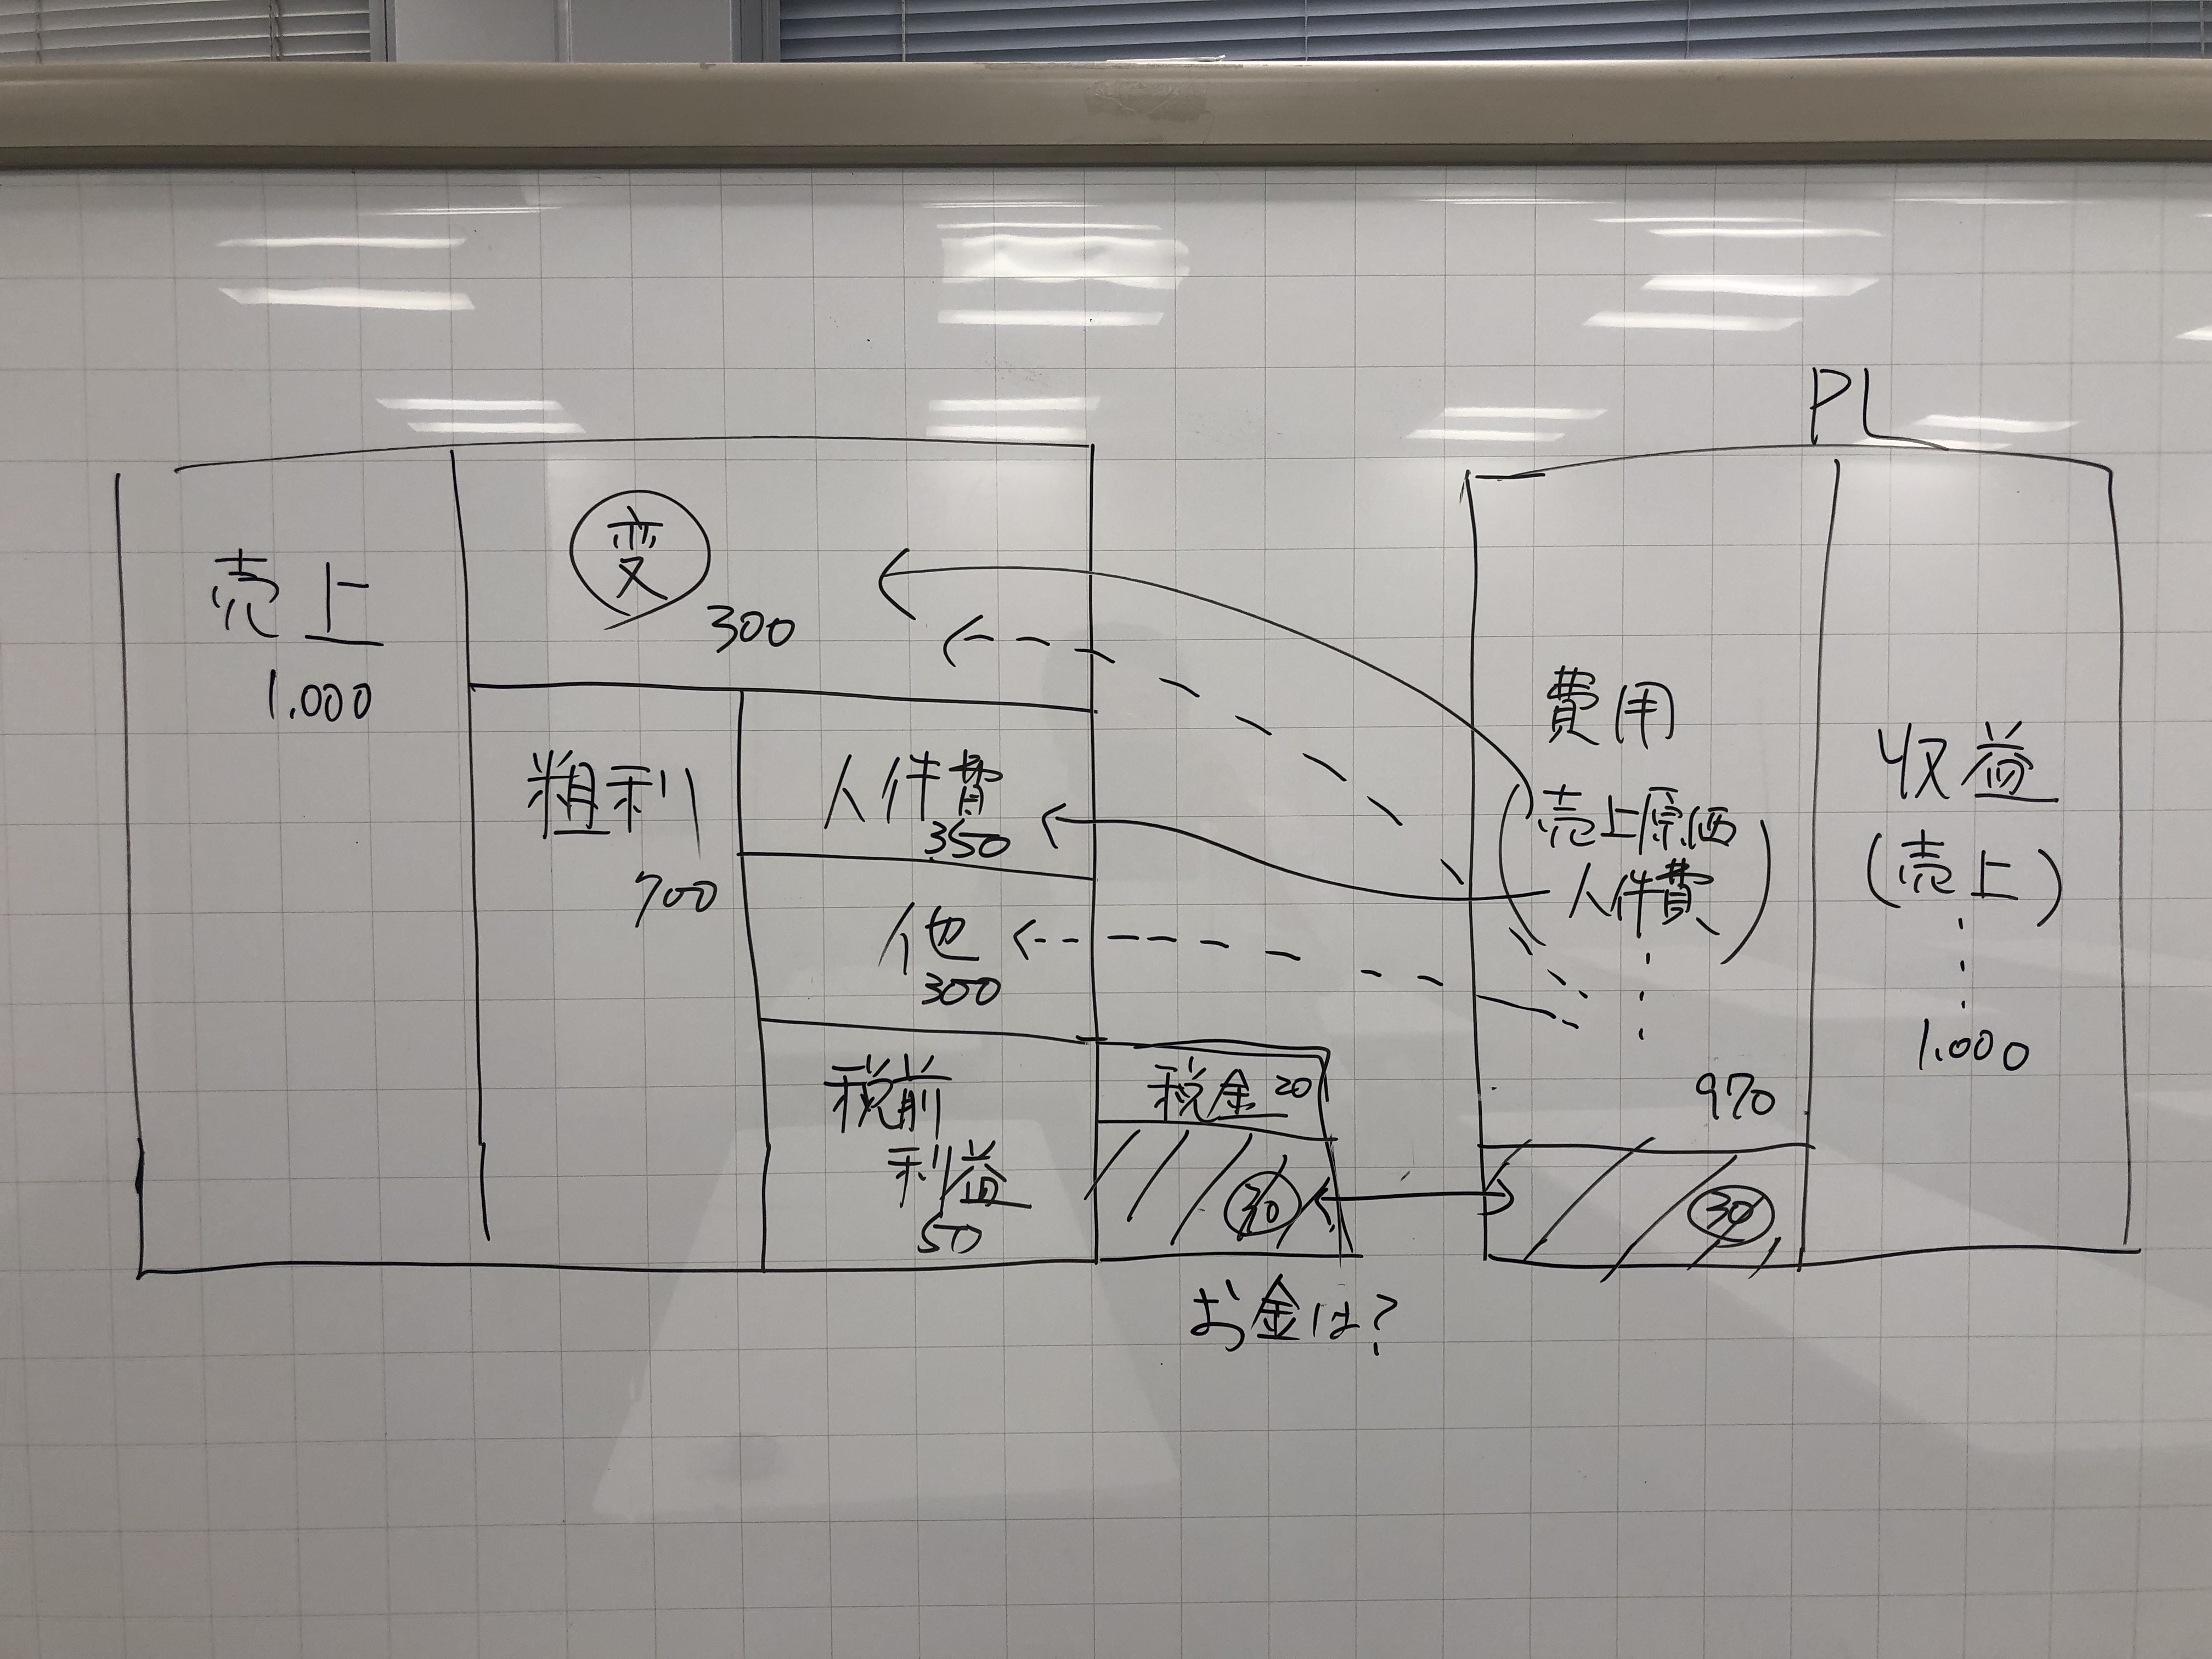 PL
売上
1.000
変
300
粗利
700
人件費
350
他
300
税前
利益
50
税金 20
30
お金は?
費用
(売上原価
人件費)
970
30
収益
(売上)
1.000